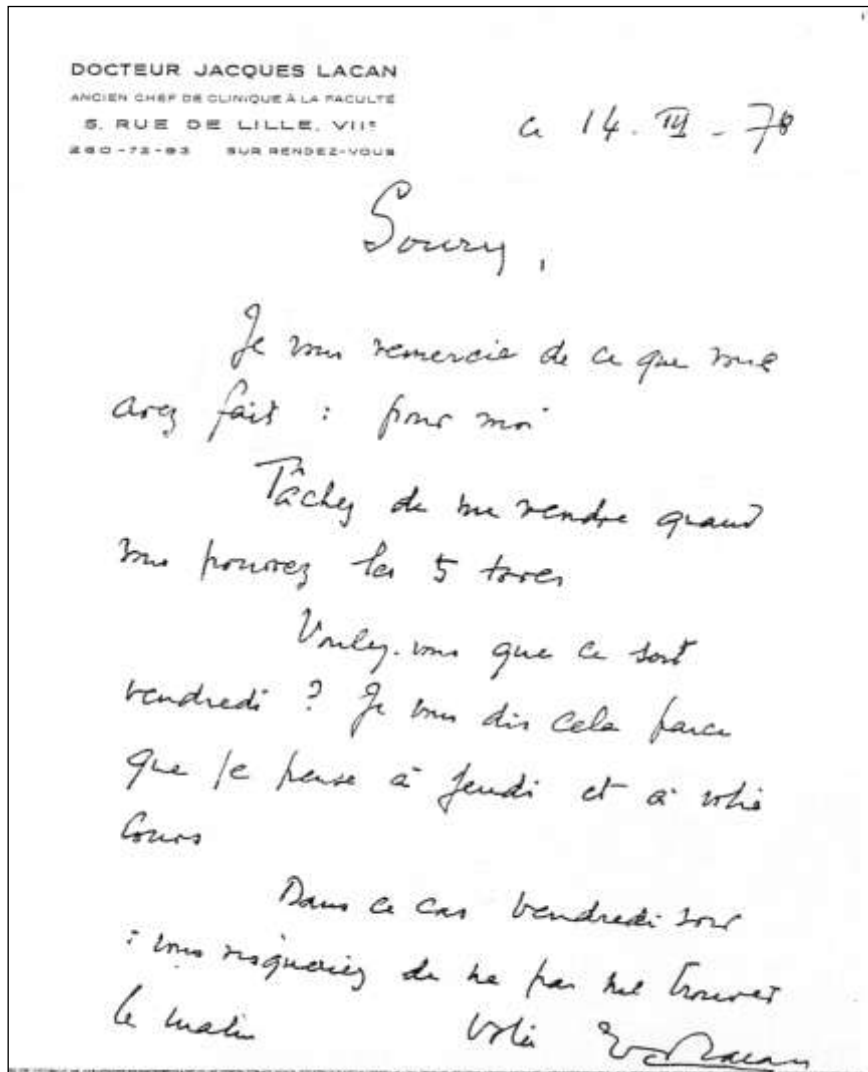 DOCTEUR JACQUES LACAN
ANCIEN CHEF DE CLINIQUE À LA FACULTÉ
5, RUE DE LILLE, VIIᵉ
260-72-93 SUR RENDEZ-VOUS
ce 14. III - 78
Soury,
Je vous remercie de ce que vous
avez fait : pour moi
Tâchez de me rendre quand
vous pourrez les 5 tores
Voulez-vous que ce soit
vendredi ? Je vous dis cela parce
que je pense à jeudi et à votre
cours
Dans ce cas vendredi soir
: vous risqueriez de ne pas me trouver
le matin Votre J. Lacan